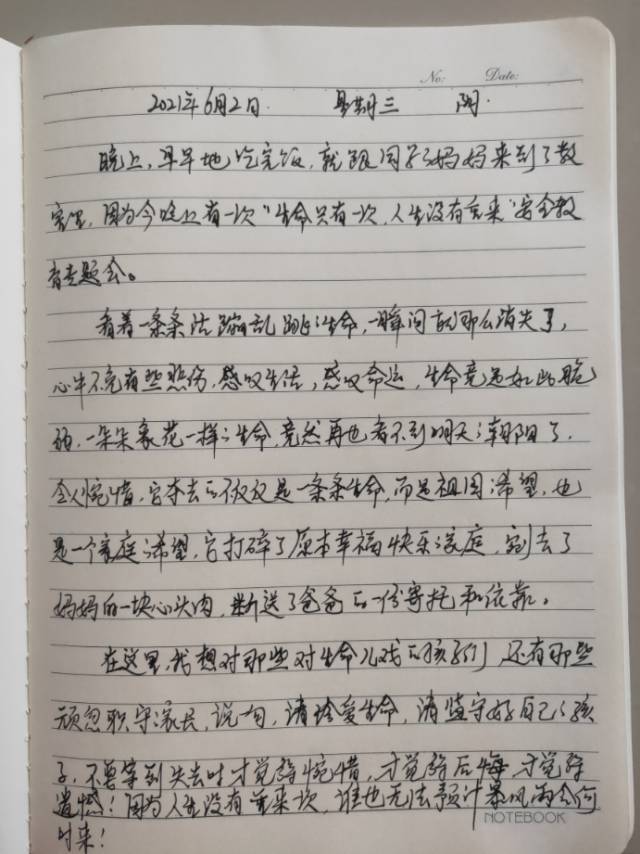 No:   Date:
2021年6月2日.   星期三   阴.
晚上,早早地吃完饭,就跟同学妈妈来到了教
室里,因为今晚上有一次"生命只有一次,人生没有重来"安全教
育专题会。
看着一条条活蹦乱跳的生命,一瞬间就那么消失了,
心中不免有些悲伤,感叹生活,感叹命运,生命竟是如此脆
弱,一朵朵象花一样的生命,竟然再也看不到明天的朝阳了,
令人惋惜,它夺去的不仅仅是一条条生命,而是祖国的希望,也
是一个家庭的希望,它打碎了原本幸福快乐的家庭,割去了
妈妈的一块心头肉,断送了爸爸的一份寄托和依靠。
在这里,我想对那些对生命儿戏的孩子们,还有那些
顽忽职守家长,说一句,请珍爱生命,请监守好自己的孩
子,不要等到失去时才觉得惋惜,才觉得后悔,才觉得
遗憾!因为人生没有重来次,谁也无法预计暴风雨会何
时来!
NOTEBOOK